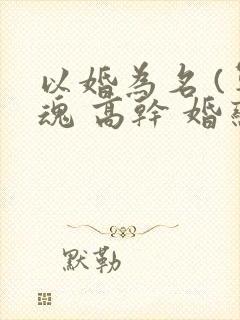 以婚為名(
魂 高幹 婚
默勒